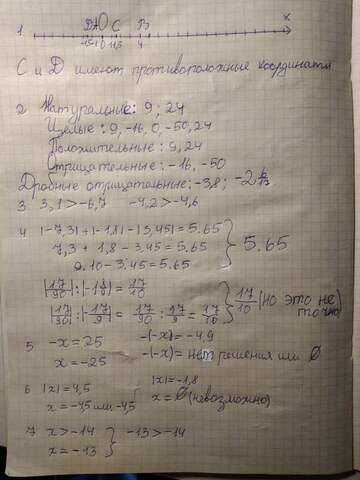 1 D A O C B x
-1,5 -1 0 1 1,5 4
C и D имеют противоположные координаты
2 Натуральные: 9; 24
Целые: 9, -16, 0, -50, 24
Положительные: 9, 24
Отрицательные: -16, -50
Дробные отрицательные: -3,8; -2
3 3,1 > -6,7 -4,2 > -4,6
4 |-7,3| + |-1,8| - |3,45| = 5.65
7,3 + 1,8 - 3.45 = 5.65
9.10 - 3.45 = 5.65
} 5.65
|17/90| : |-1 8/9| = 17/10
|17/90| : |-17/9| = 17/90 : 17/9 = 17/10
} 17/10 (но это не точно)
5 -x = 25 -(-x) = -4,9
x = -25 -(-x) = нет решения или ∅
6 |x| = 4,5 |x| = -1,8
x = -4,5 или -4,5 x = ∅ (невозможно)
7 x > -14 } -13 > -14
x = -13